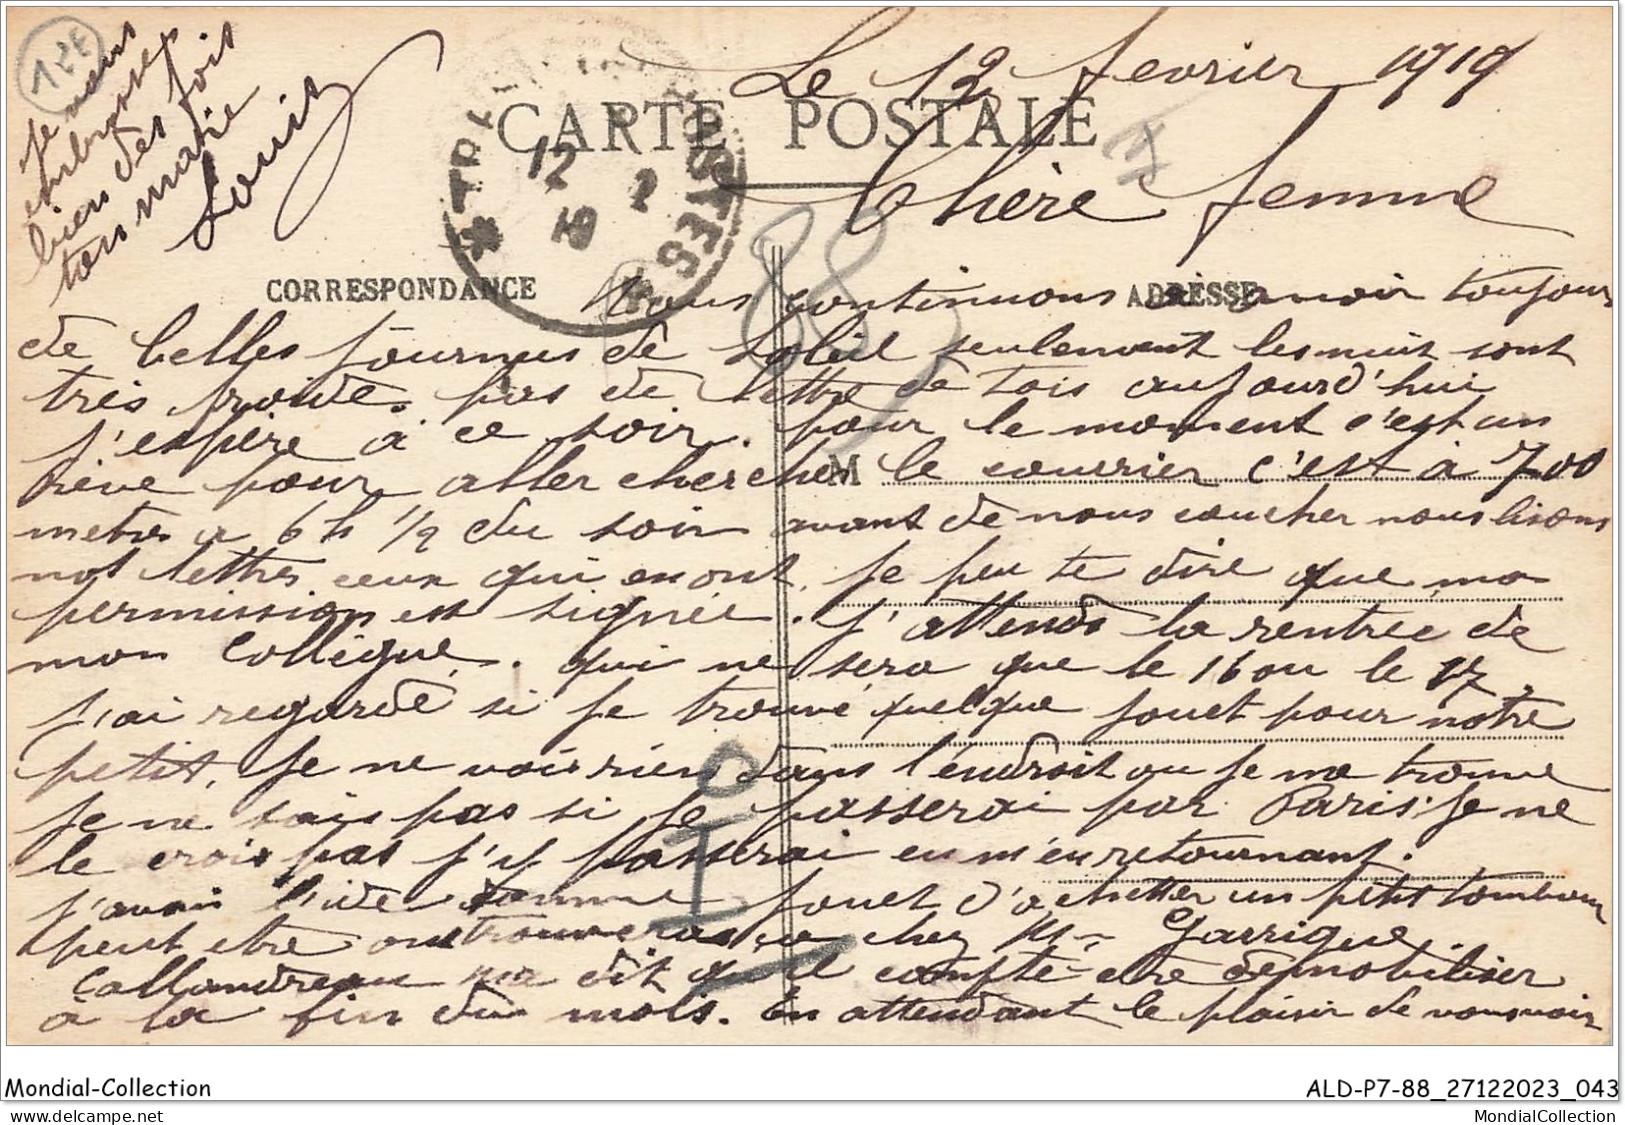 Le 12 fevrier 1919
CARTE POSTALE
Chère femme
CORRESPONDANCE
ADRESSE
Nous continuons a avoir toujours
de belles journeus de soleil seulement les nuit sont
très froide. pas de lettre de tois aujourd'hui
j'espère à ce soir. pour le moment c'est un
rêve pour aller chercher le courrier c'est à 700
M
metres a 6 h 1/2 du soir avant de nous coucher nous lisons
nos lettres ceux qui en ont. Je peu te dire que ma
permission est signée. J'attends la rentrée de
mon collègue. qui ne sera que le 16 ou le 17.
J'ai regardé si je trouve quelque jouet pour notre
petit, Je ne vois rien dans l'endroit ou je me trouve
Je ne sais pas si Je passerai par Paris. Je ne
le crois pas j'y passerai en m'en retournant.
J'avais l'idee comme jouet d'achetter un petit tombour
peut etre on trouveras ça chez Mr Garrigue
Callandreau ma dit qu'il compte etre demobiliser
à la fin du mois. En attendant le plaisir de vous voir
Je vous
embrasse
bien des fois
ton marie
Louis
12 2 19
POSTES
88
122
Mondial-Collection
ALD-P7-88_27122023_043
MondialCollection